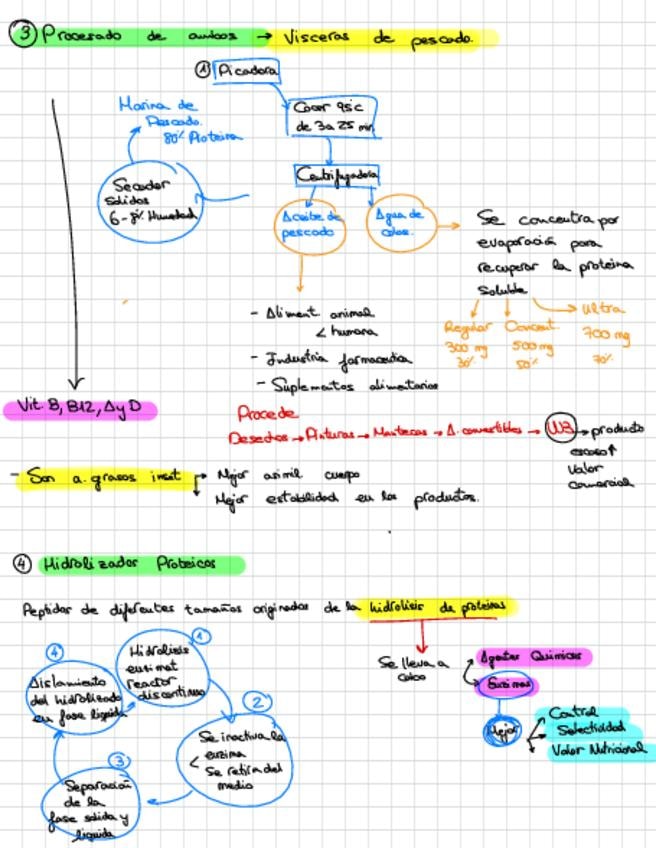 ③ Procesado de ambos → Visceras de pescado.
① Picadora
Cocer 95ºc
de 3 a 25 min
Harina de
Pescado.
80% Proteina
Centrifugadora
Secador
solidos
6-8% Humedad
Aceite de
pescado
Agua de
colas.
Se concentra por
evaporación para
recuperar la proteina
Soluble
Regular
300 mg
30%
Concent.
500 mg
50%
Ultra
700 mg
70%
- Aliment. animal
< humana
- Industria farmaceutica
- Suplementos alimentarios
Vit. B, B12, A y D
Procede
Desechos → Pinturas → Mantecas → A. comestibles → W3 → producto
escaso ↑
Valor
comercial
- Son a. grasos insat
Mejor asimil cuerpo
Mejor estabilidad en los productos.
④ Hidrolizados Proteicos
Peptidos de diferentes tamaños originados de la hidrolisis de proteinas
Se lleva a
cabo
Agentes Quimicos
Enzimas
Mejor
Control
Selectividad
Valor Nutricional
①
Hidrolisis
enzimat
reactor
discontinuo
②
Se inactiva la
enzima
<
Se retira del
medio
③
Separación
de la
fase solida y
liquida
④
Aislamiento
del hidrolizado
en fase liquida